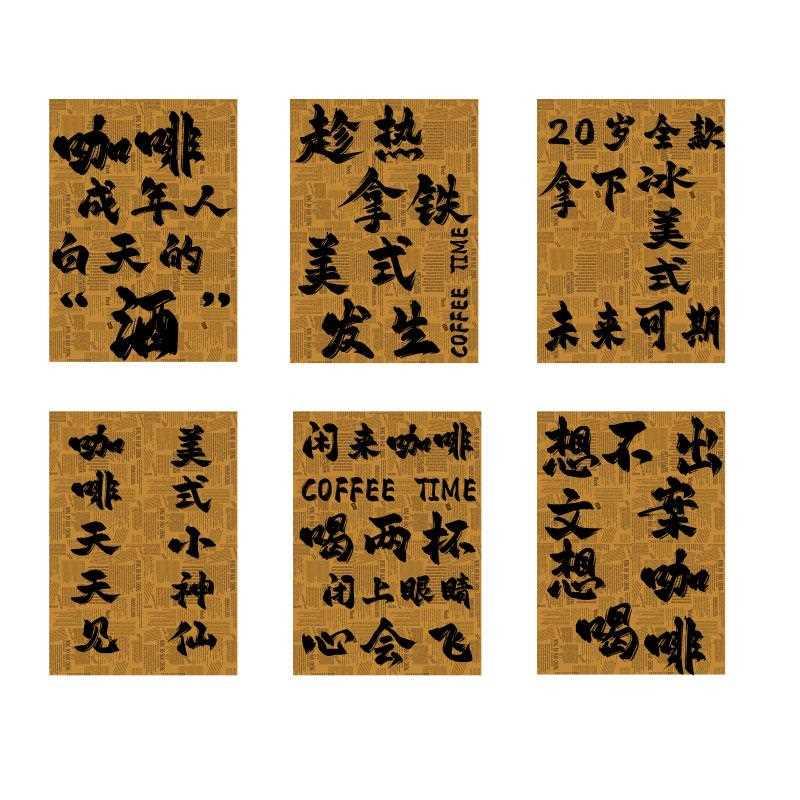 咖啡
成年人
白天的
“酒”
趁热
拿铁
美式
发生
COFFEE TIME
20岁全款
拿下冰
美
式
未来可期
咖啡天天见
美式小神仙
闲来咖啡
COFFEE TIME
喝两杯
闭上眼睛
心会飞
想不出
文案
想咖
喝啡